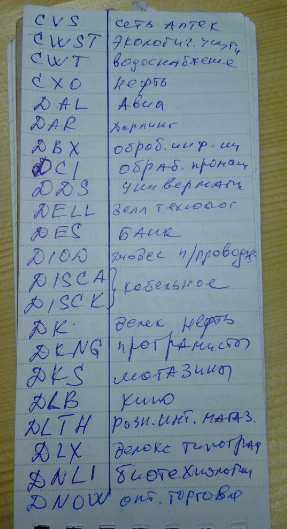 CVS сеть Аптек
CWST Экологич. услуги
CWT водоснабжение
CXO Нефть
DAL Авиа
DAR Дарлинг
DBX обраб. инф-ии
DCI обраб. промыш
DDS универмаги
DELL Делл технолог
DES Банк
DIOD диодес п/проводн
DISCA } кабельное
DISCK
DK Делек нефть
DKNG програмисты
DKS магазины
DLB Кино
DLTH розн. инт. магаз.
DLX Делюкс типограф
DNLI биотехнологии
DNOW опт. торговля